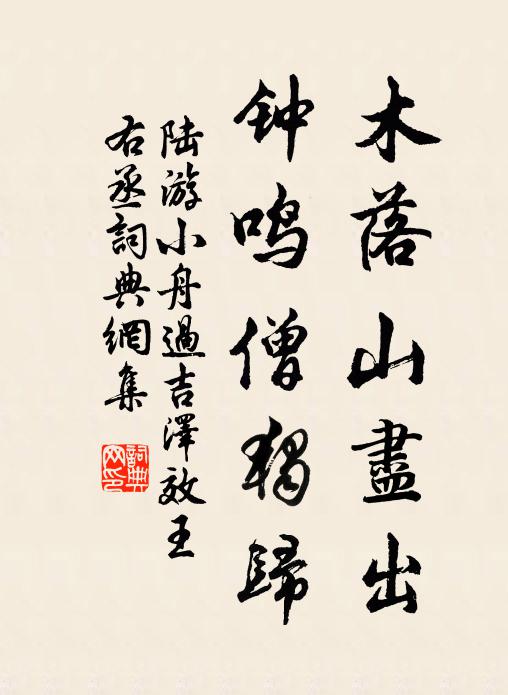 木落山盡出
钟鸣僧獨歸
陆游小舟過吉澤效王
右丞詞典網集
詞典
网印